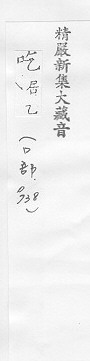 精嚴新集大藏音
吃居乙(口部.938)